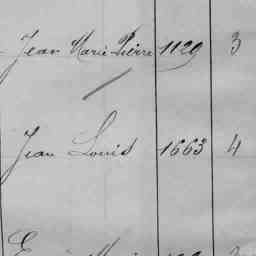 Jean Marie Pierre 1129 3
Jean Louis 1663 4